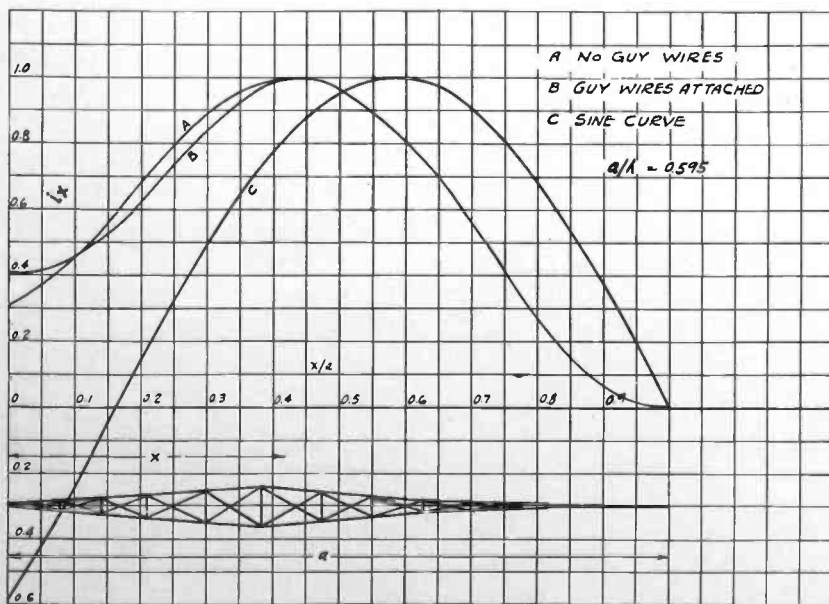 A NO GUY WIRES
B GUY WIRES ATTACHED
C SINE CURVE
a/λ = 0.595
1.0
0.8
0.6
0.4
0.2
0
0.2
0.4
0.6
ix
A
B
C
x/2
0.1
0.2
0.3
0.4
0.5
0.6
0.7
0.8
0.9
x
a